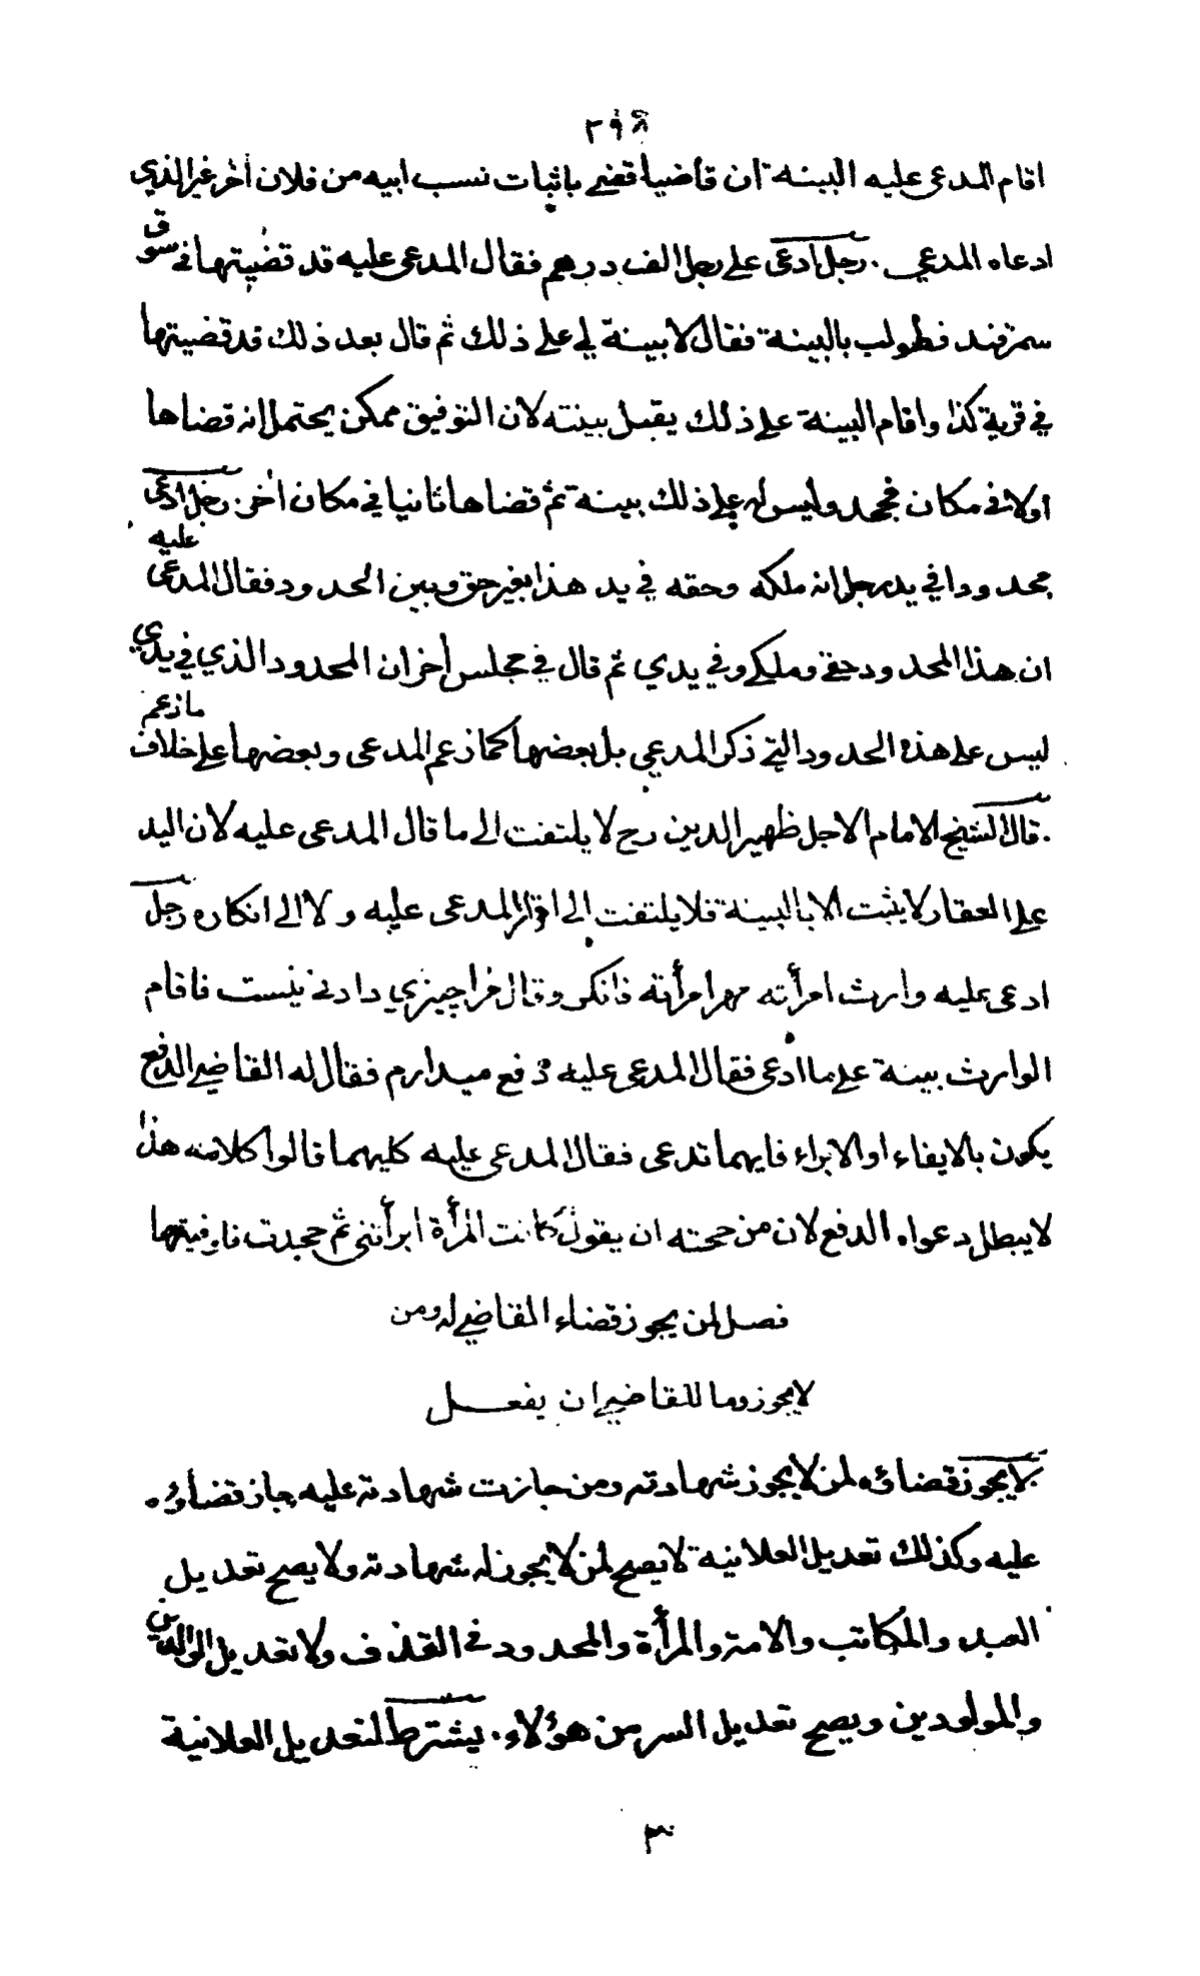 ٢٩٨
اقام المدعى عليه البينة ان قاضيا قضى باثبات نسب ابيه من فلان آخر غير الذي
ادعاه المدعي . رجل ادعى على رجل الف درهم فقال المدعى عليه قد قضيتها في سوق
سمرقند فطولب بالبينة فقال لا بينة لي على ذلك ثم قال بعد ذلك قد قضيتها
في قرية كذا واقام البينة على ذلك يقبل بينته لان التوفيق ممكن يحتمل انه قضاها
اولا في مكان فجحد وليس له على ذلك بينة ثم قضاها ثانيا في مكان آخر . رجل ادعى
محدودا في يد رجل انه ملكه وحقه في يد هذا بغير حق وبين الحدود فقال المدعى عليه
ان هذا المحدود حقي وملكي وفي يدي ثم قال في مجلس آخر ان المحدود الذي في يدي
ليس على هذه الحدود التي ذكر المدعي بل بعضها كما زعم المدعى وبعضها على خلاف ما زعم
. قال الشيخ الامام الاجل ظهير الدين رح لا يلتفت الى ما قال المدعى عليه لان اليد
على العقار لا يثبت الا بالبينة فلا يلتفت الى اقرار المدعى عليه ولا الى انكاره رجل
ادعى عليه وارث امرأته مهر امرأته فانكر وقال مرا چيزي دادني نيست فاقام
الوارث بينة على ما ادعى فقال المدعى عليه دفع ميدارم فقال له القاضي الدفع
يكون بالايفاء او الابراء فايهما تدعى فقال المدعى عليه كليهما قالوا كلامه هذا
لا يبطل دعواه الدفع لان من حجته ان يقول كانت المرأة ابرأتني ثم جحدت فاوفيتها
فصل لمن يجوز قضاء القاضي له ومن
لا يجوز وما للقاضي ان يفعل
لا يجوز قضاؤه لمن لا يجوز شهادته ومن جازت شهادته عليه جاز قضاؤه
عليه وكذلك تعديل العلانية لا يصح لمن لا يجوز له شهادته ولا يصح تعديل
العبد والمكاتب والامة والمرأة والمحدود في القذف ولا تعديل الوالدين
والمولودين ويصح تعديل السر من هؤلاء . يشترط لتعديل العلانية